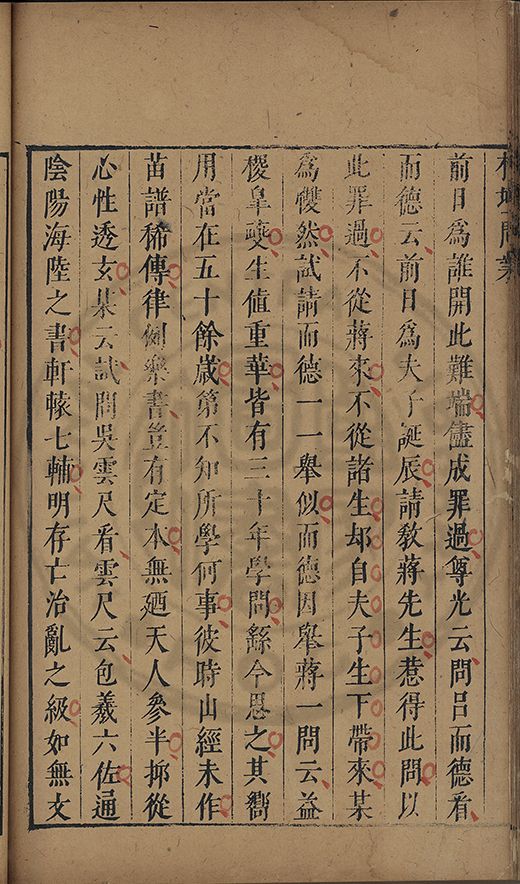 榕壇問業
前日爲誰開此難端儘成罪過尊光云問呂而德看
而德云前日爲夫子誕辰請敎蔣先生惹得此問以
此罪過不從蔣來不從諸生却自夫子生下帶來某
爲戄然試請而德一一舉似而德因舉蔣一問云益
稷皐夔生值重華皆有三十年學問繇今思之其嚮
用當在五十餘歲第不知所學何事彼時山經未作
苗譜稀傳律例樂書豈有定本無廼天人參半抑從
心性透玄某云試問吳雲尺看雲尺云包羲六佐通
陰陽海陸之書軒轅七輔明存亡治亂之級如無文